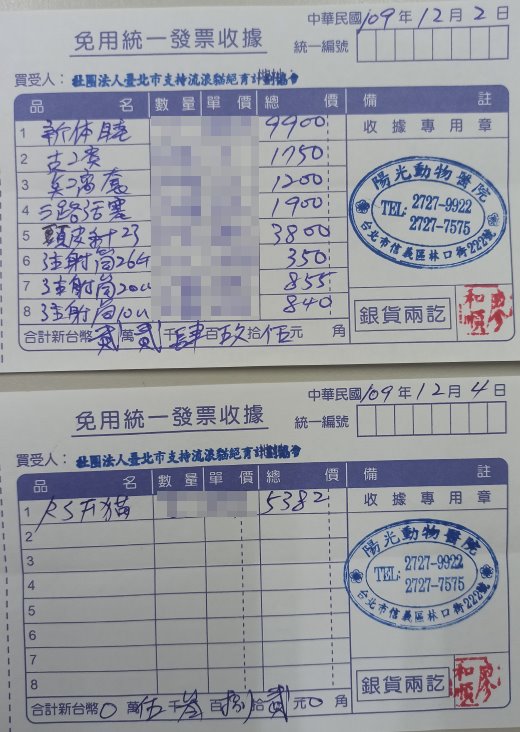 中華民國109年12月2日
免用統一發票收據
統一編號
買受人：社團法人臺北市支持流浪貓絕育計劃協會
品名 數量 單價 總價 備註
1 新体睦 9900
收據專用章
2 1750
3 1200
4 三路活塞 1900
5 頭皮針23 3800
6 注射筒26G 350
7 注射筒20cc 855
8 注射筒10cc 840
陽光動物醫院
TEL: 2727-9922
2727-7575
台北市信義區林口街222號
銀貨兩訖
合計新台幣貳萬貳千肆百玖拾伍元 角
中華民國109年12月4日
免用統一發票收據
統一編號
買受人：社團法人臺北市支持流浪貓絕育計劃協會
品名 數量 單價 總價 備註
1 5382
收據專用章
2
3
4
5
6
7
8
陽光動物醫院
TEL: 2727-9922
2727-7575
台北市信義區林口街222號
銀貨兩訖
合計新台幣0萬伍千叁百捌拾貳元0角